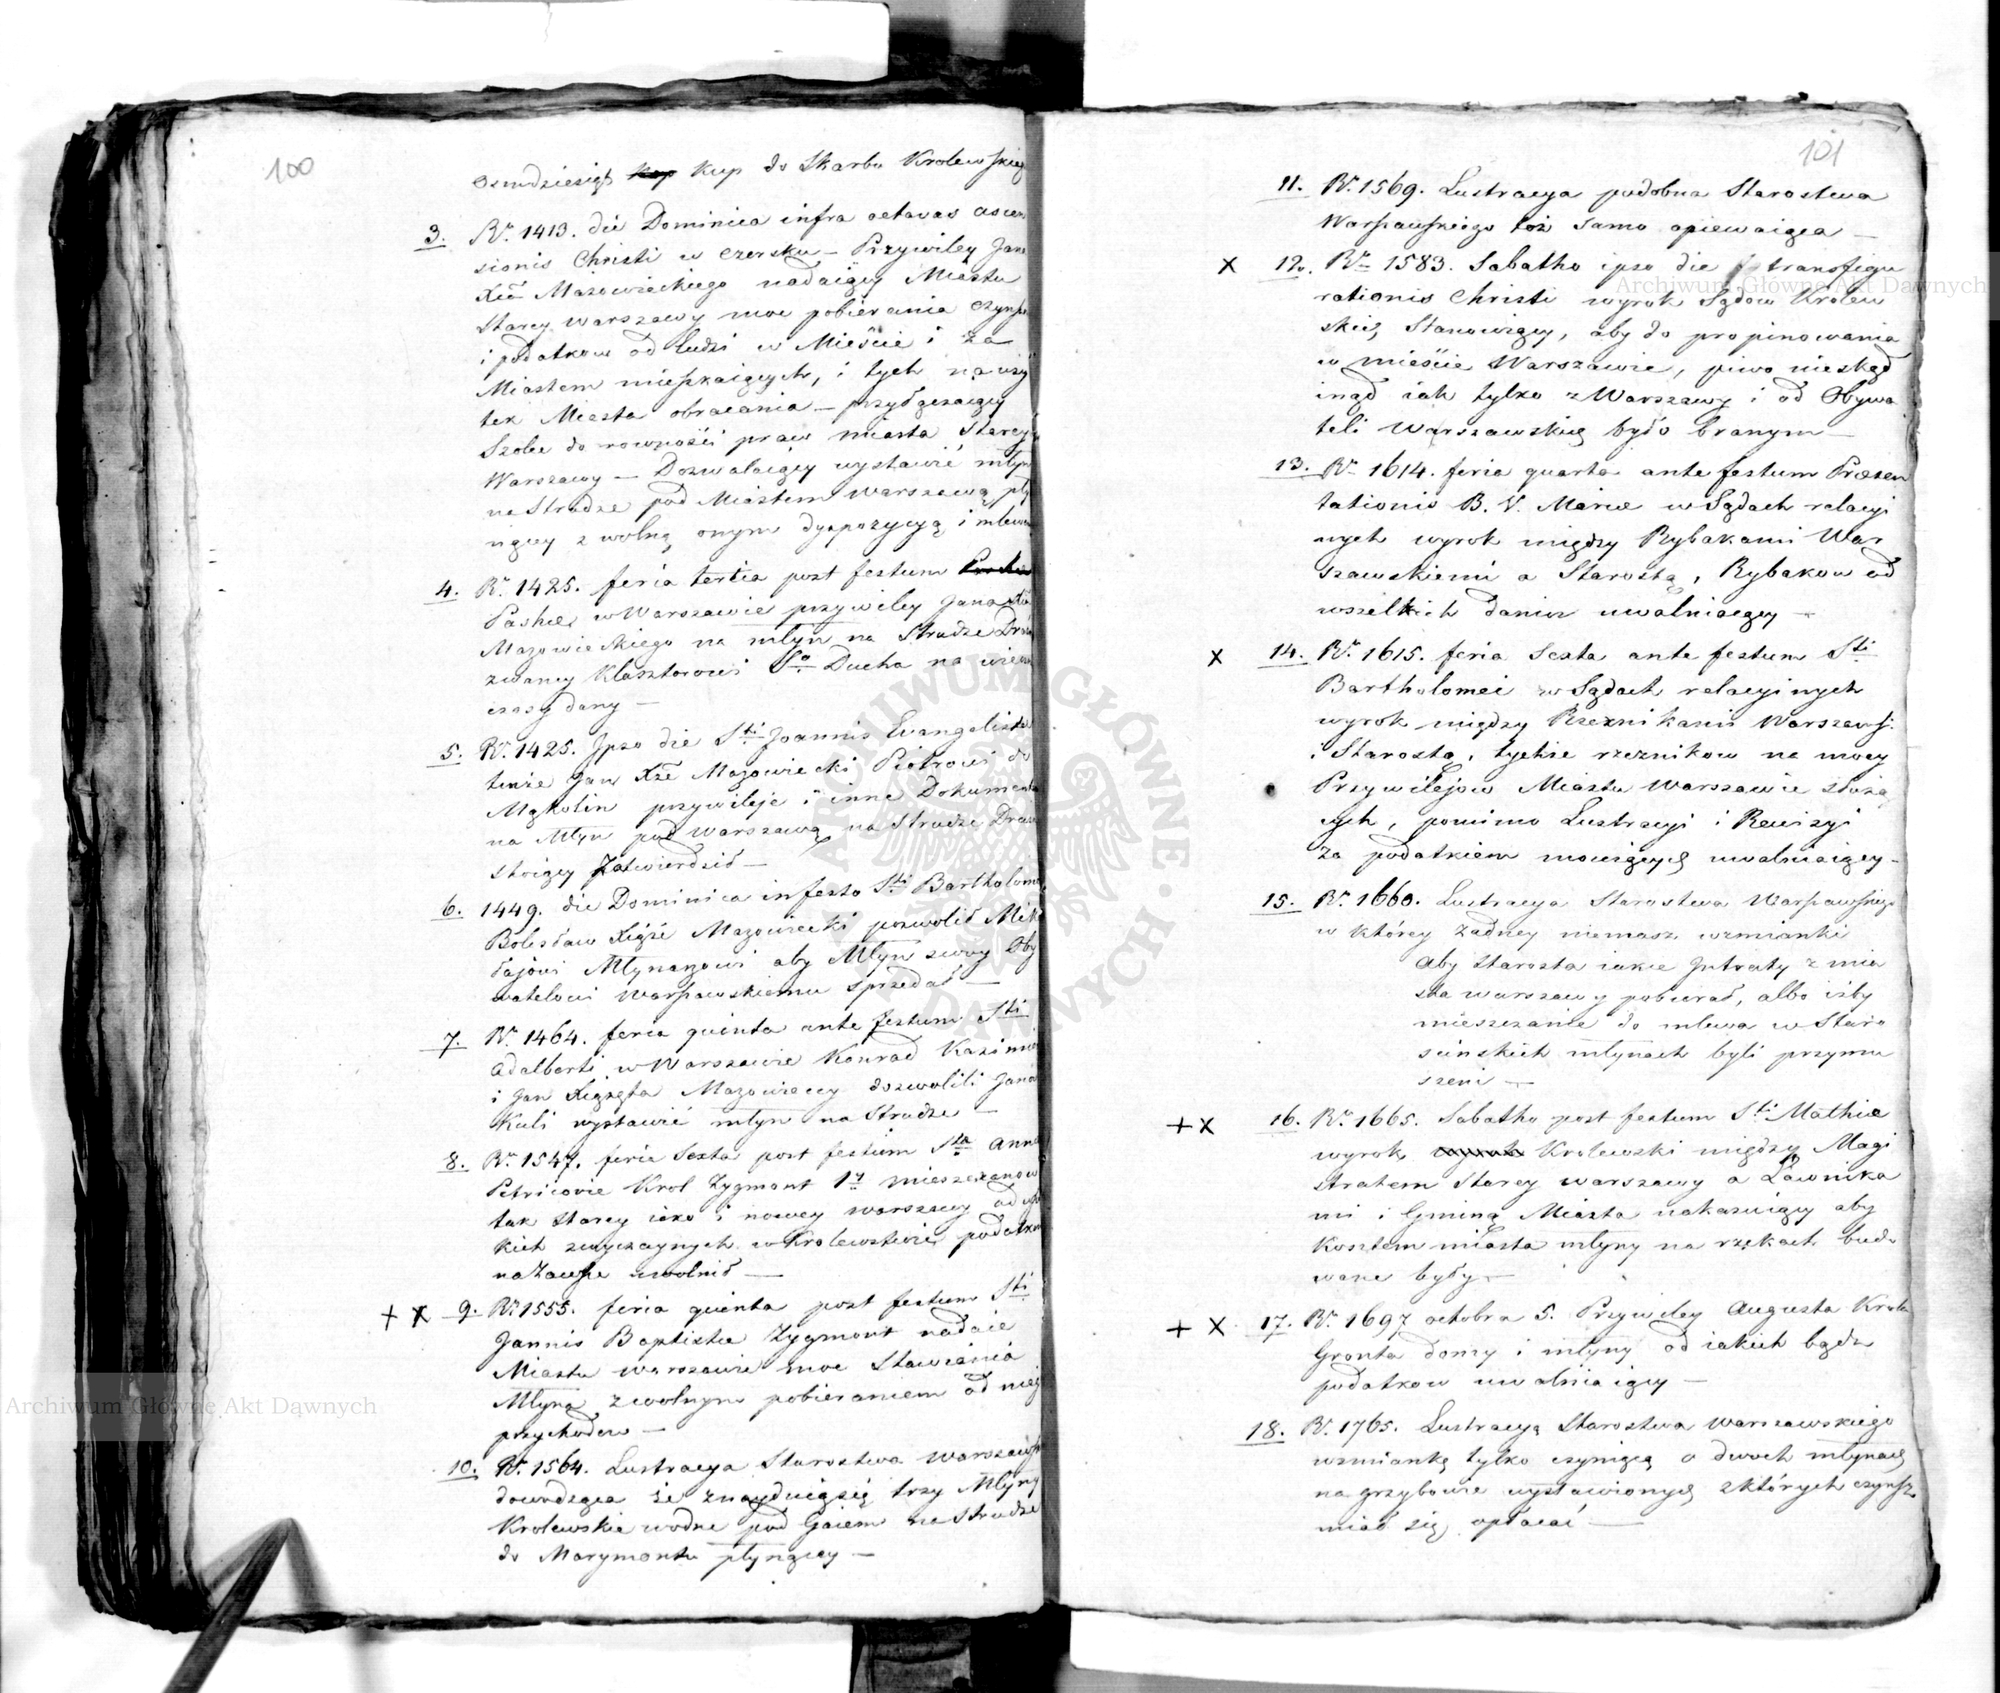 100
Osmdziesiąt kop Kup do Skarbu Krolewskieg
3. Rº. 1413. die Dominica infra octavas ascen
sionis Christi w Czersku – Przywiley Jana
Xcia Mazowieckiego nadaiący Miastu
Starey Warszawy moc pobierania czynszu
i podatkow od ludzi w Mieście i za
Miastem mieszkaiących, i tych na uży
tek Miasta obracania – przyłączaiący
Szolce do rowności praw miasta Starey
Warszawy – Dozwalaiący wystawić młyn
na Strudze pod Miastem Warszawą pły
nącey z wolną onym dyspozycyą i mlewem
4. Rº. 1425. feria tertia post festum
Paschae w Warszawie przywiley Jana Xcia
Mazowieckiego na młyn na Strudze Drna
zwaney Klasztorowi Sº Ducha na wieczne
czasy dany –
5. Rº. 1425. Ipso die Sti Joannis Evangelistae
tenże Jan Xże Mazowiecki Piotrowi de
Mąkolin przywileje i inne Dokumenta
na Młyn pod Warszawą na Strudze Drna
stoiący zatwierdził –
6. 1449. die Dominica in festo Sti Bartholome
Bolesław Xiąże Mazowiecki pozwolił Mik
łajowi Młynarzowi aby Młyn swoy Oby
watelowi Warszawskiemu sprzedał –
7. Rº. 1464. feria quinta ante festum Sti
Adalberti w Warszawie Konrad Kazimie
i Jan Xiążęta Mazowieccy dozwolili Janowi
Kuli wystawić młyn na Strudze –
8. Rº. 1547. feria Sexta post festum Sta Anna
Petricovie Krol Zygmont 1y mieszczanow
tak Starey iako i nowey Warszawy od wsze
kich zwyczaynych w Krolewstwie podatkow
na zawsze uwolnił –
+ x 9. Rº. 1555. feria quinta post festum Sti
Joannis Baptistae Zygmont nadaie
Miastu Warszawie moc stawiania
Młyna z wolnym pobieraniem od niego
przychodow –
10. Rº. 1564. Lustracya Starostwa Warszawsk
dowodząca że znayduią się trzy Młyny
Krolewskie wodne pod Gaiem na Strudze
do Marymontu płynącey –
101
11. Rº. 1569. Lustracya podobna Starostwa
Warszawskiego toż samo opiewaiąca –
x 12. Rº. 1583. Sabatho ipso die transfigu
rationis Christi wyrok Sądow Krolew
skich Stanowiący, aby do propinowania
w mieście Warszawie, piwo nieskąd
inąd iak tylko z Warszawy i od Obywa
teli Warszawskich było branym –
13. Rº. 1614. feria quarta ante festum Praesen
tationis B. V. Mariae w Sądach relacyi
nych wyrok między Rybakami War
szawskiemi a Starostą, Rybakow od
wszelkich danin uwalniaiący –
x 14. Rº. 1615. feria Sexta ante festum Sti
Bartholomei w Sądach relacyinych
wyrok między Rzeznikami Warszawsk.
i Starostą, tychże rzeznikow na mocy
Przywilejow Miastu Warszawie służą
cych, pomimo Lustracyi i Rewizyi
za podatkiem mowiących uwalniaiący –
15. Rº. 1660. Lustracya Starostwa Warszawskiego
w którey żadney niemasz wzmianki
aby Starosta iakie Intraty z mia
sta Warszawy pobierał, albo iżby
mieszczanie do mlewa w Staro
scinskich młynach byli przymu
szeni –
+ x 16. Rº. 1665. Sabatho post festum Sti Mathiae
wyrok Krolewski między Magi
stratem Starey Warszawy a Ławnika
mi i Gminą Miasta nakazuiący aby
Kosztem miasta młyny na rzekach budo
wane były –
+ x 17. Rº. 1697 octobra 5. Przywiley Augusta Krola
Gronta domy i młyny od iakich bądz
podatkow uwalniaiący –
18. Rº. 1765. Lustracya Starostwa Warszawskiego
wzmiankę tylko czyniąca o dwoch młynach
na grzybowie wystawionych z których czynsz
miał się opłacać –
Archiwum Główne Akt Dawnych
Archiwum Główne Akt Dawnych
ARCHIWUM GŁÓWNE AKT DAWNYCH